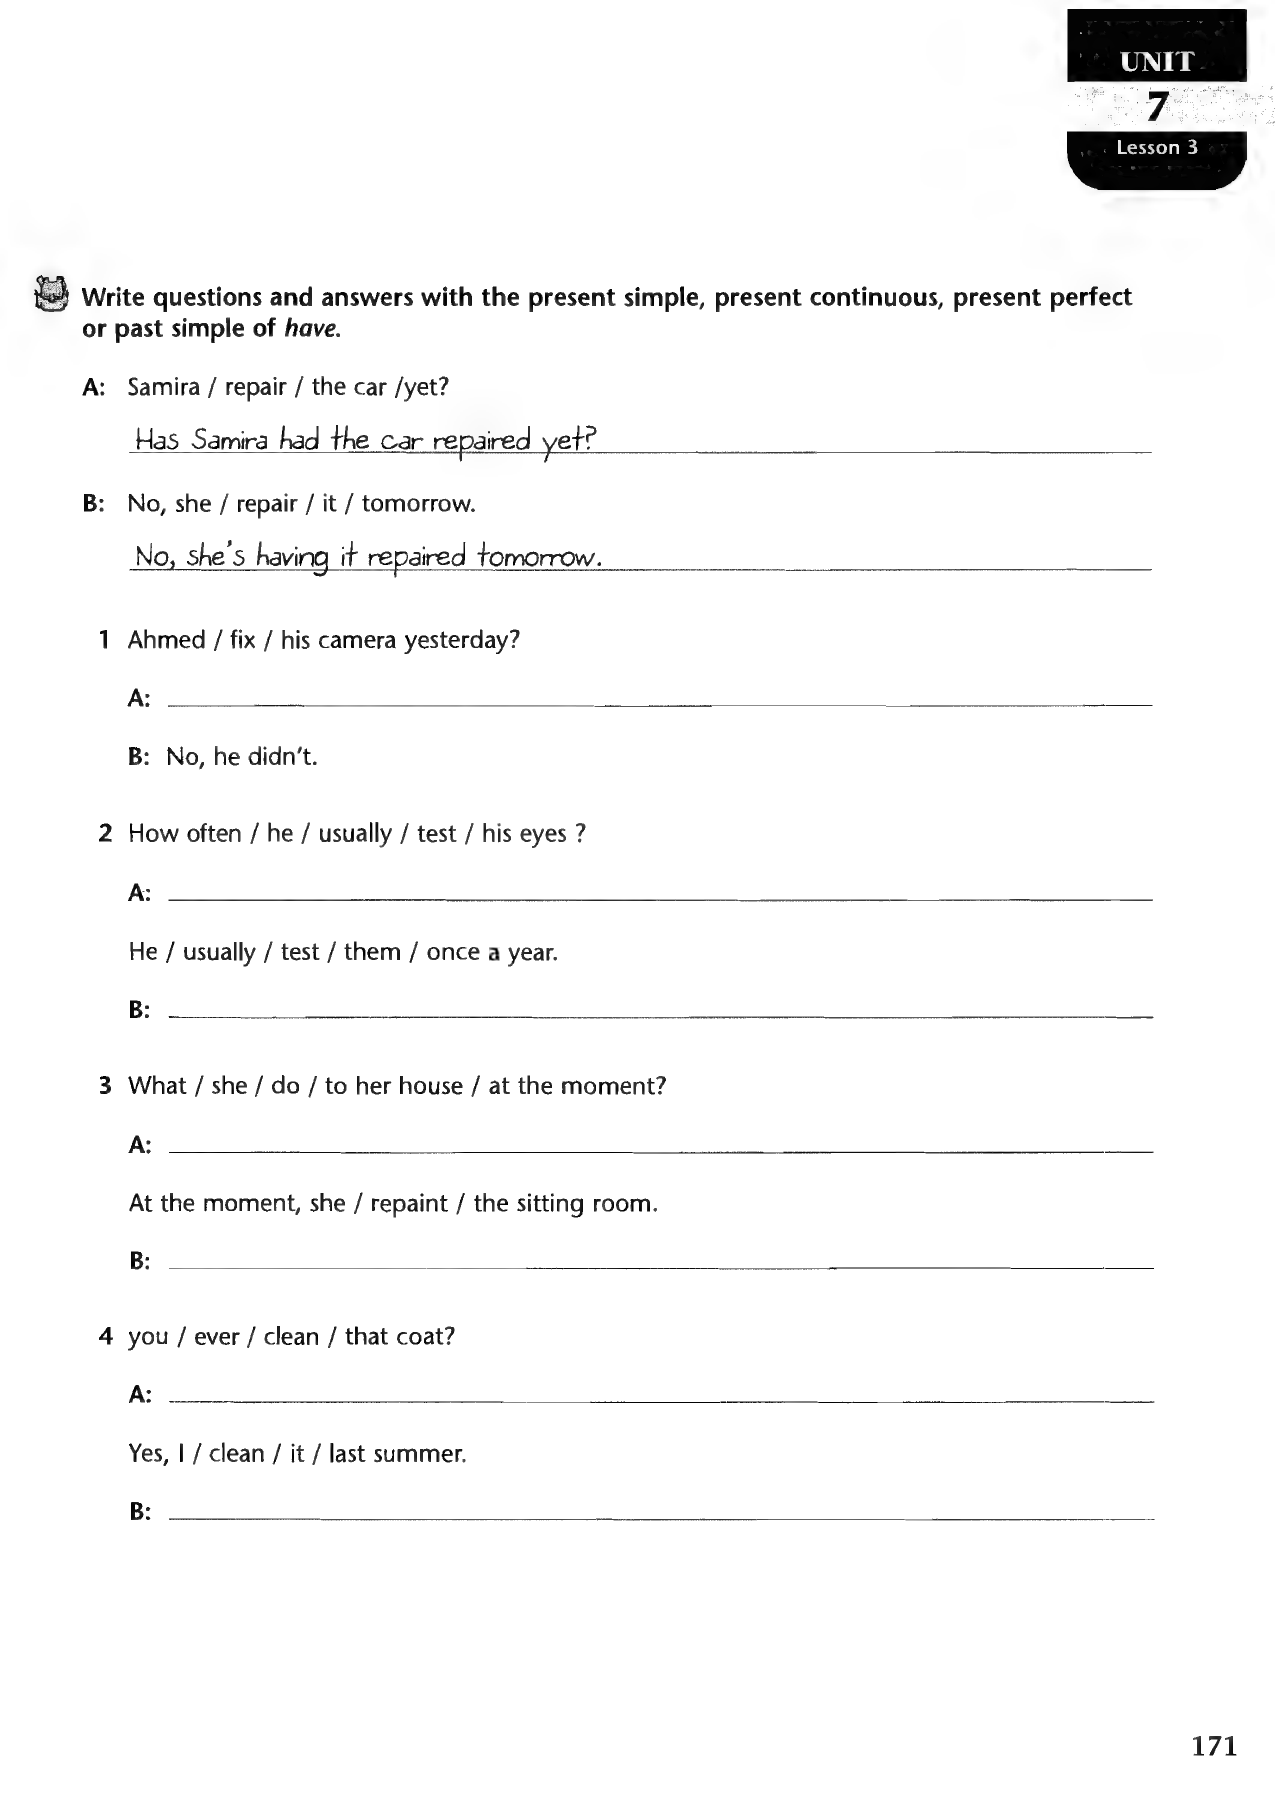 UNIT
7
Lesson 3
Write questions and answers with the present simple, present continuous, present perfect
or past simple of have.
A: Samira / repair / the car /yet?
Has Samira had the car repaired yet?
B: No, she / repair / it / tomorrow.
No, she's having it repaired tomorrow.
1 Ahmed / fix / his camera yesterday?
A:
B: No, he didn't.
2 How often / he / usually / test / his eyes ?
A:
He / usually / test / them / once a year.
B:
3 What / she / do / to her house / at the moment?
A:
At the moment, she / repaint / the sitting room.
B:
4 you / ever / clean / that coat?
A:
Yes, I / clean / it / last summer.
B:
171